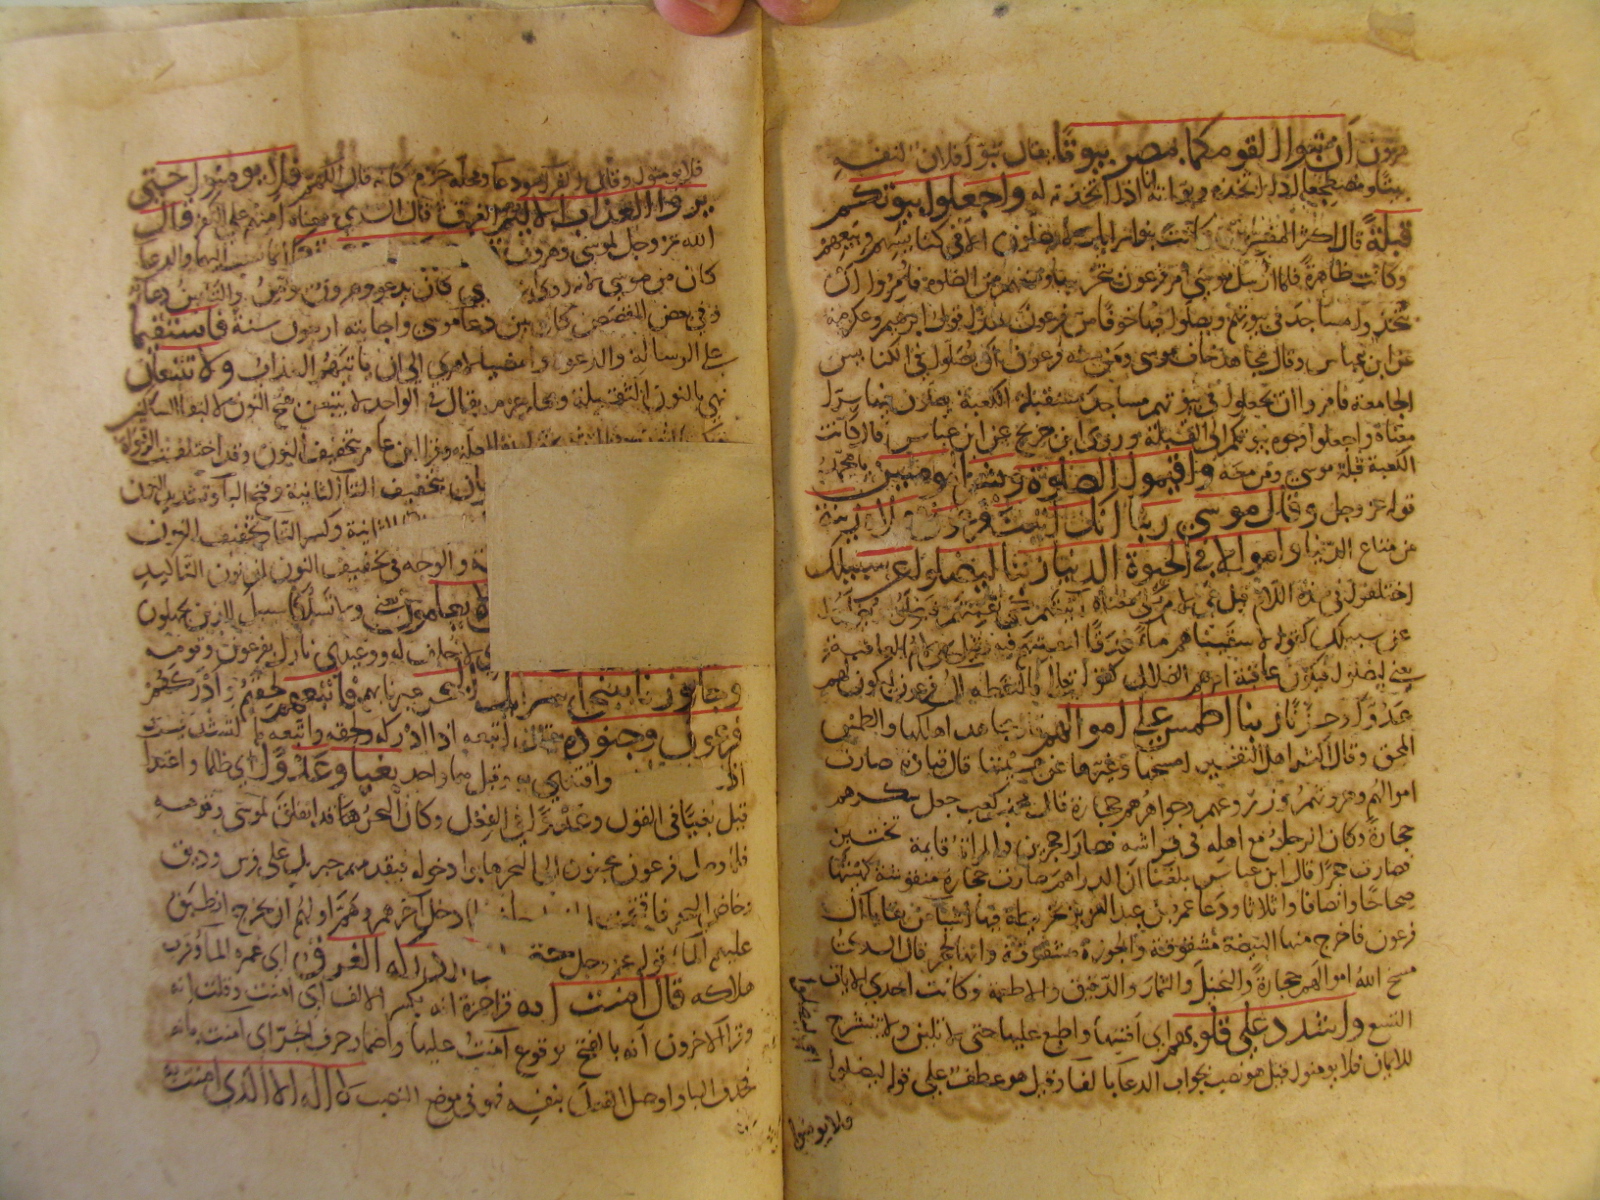 هرون أن تبوآ لقومكما بمصر بيوتا يقال تبوأ فلان لنفسه
بيتا ومضطجعا اذا اتخذه وبوأته انا اذا اتخذته له واجعلوا بيوتكم
قبلةً قال اكثر المفسرين كانت بنوا اسرائيل لا يصلون الا في كنائسهم وبيعهم
وكانت ظاهرة فلما ارسل موسى امر فرعون بتخريبها ومنعهم من الصلوة فامروا ان
يتخذوا مساجد في بيوتهم ويصلوا فيها خوفا من فرعون هذا قول ابرهيم وعكرمة
عن ابن عباس وقال مجاهد خاف موسى ومن معه فرعون أن يصلوا في الكنايس
الجامعة فامروا ان يجعلوا في بيوتهم مساجد مستقبلة الكعبة يصلون فيها سرا
معناه واجعلوا وجوه بيوتكم الى القبلة وروى ابن جريج عن ابن عباس قال كانت
الكعبة قبلة موسى ومن معه واقيموا الصلوة وبشر المومنين يا محمد
قوله عز وجل وقال موسى ربنا انك اتيت فرعون وملاه زينة
من متاع الدنيا واموالا في الحيوة الدنيا ربنا ليضلوا عن سبيلك
اختلفوا في هذه اللام قيل هي لام كي معناه اتيتهم كي تفتنهم فيضلوا ويضلوا
عن سبيلك كقوله لاسقيناهم ماء غدقا لنفتنهم فيه وقيل هي لام العاقبة
يعني ليضلوا فيكون عاقبة امرهم الضلال كقوله تعالى فالتقطه آل فرعون ليكون لهم
عدوا وحزنا ربنا اطمس على اموالهم قال مجاهد اهلكها والطمس
المحق وقال اكثر اهل التفسير امسخها وغيرها عن هيئتها قال قتادة صارت
اموالهم وحروثهم وزروعهم وجواهرهم حجارة قال محمد بن كعب جعل سكرهم
حجارة وكان الرجل مع اهله في فراشه فصارا حجرين والمراة قايمة تختبز
فصارت حجرا قال ابن عباس بلغنا ان الدراهم صارت حجارة منقوشة كهيئتها
صحاحا وانصافا واثلاثا ودعا عمر بن عبد العزيز بخريطة فيها اشياء من بقايا آل
فرعون فاخرج منها البيضة مشقوقة والجوزة مشقوقة وانها لحجر قال السدي
مسخ الله اموالهم حجارة والنخيل والثمار والدقيق والاطعمة وكانت احدى الايات
التسع واشدد على قلوبهم اي اقسها واطبع عليها حتى لا تلين ولا تنشرح
للايمان فلا يومنوا قيل هو نصب بجواب الدعا بالفاء وقيل هو عطف على قوله ليضلوا
فلا يومنوا
فلا يومنوا وقال الفراء هو دعا ومحله جزم كانه قال اللهم فلا يومنوا حتى
يروا العذاب الاليم الغرق قال السدي معناه امتهم على الكفر قال
الله عز وجل لموسى وهرون انما نسب اليهما والدعا
كان من موسى لانه روي كان يدعو وهرون يومن والتامين دعا
وفي بعض القصص كان بين دعا موسى واجابته اربعون سنة فاستقيما
على الرسالة والدعوة وامضيا لامري الى ان ياتيكم العذاب ولا تتبعان
نهي بالنون الثقيلة ومحله جزم يقال في الواحد لا تتبعن بفتح النون لالتقا الساكنين
وقرا ابن عامر بتخفيف النون وقد اختلفت الرواية
بتخفيف التاء الثانية وفتح الباء وتشديد النون
الثانية وكسر الباء وتخفيف النون
والوجه في تخفيف النون ان نون التاكيد
يعني ولا تسلكا سبيل الذين يجهلون
لا خلاف له ووعيدي نازل بفرعون وقومه
وجاوزنا ببني اسرائيل البحر عبرنا بهم فاتبعهم لحقهم وادركهم
فرعون وجنوده يقال اتبعه اذا ادركه ولحقه واتبعه بالتشديد
اذا واقتدى به وقيل هما واحد بغيا وعدوا اي ظلما واعتدا
قيل بغيا في القول وعدوا في الفعل وكان البحر قد انفلق لموسى وقومه
فلما وصل فرعون بجنوده الى البحر هابوا دخوله فتقدمهم جبريل على فرس وديق
وخاض البحر فاقتحمت دخل آخرهم وهم اولهم ان يخرج انطبق
عليهم الماء قوله عز وجل حتى ادركه الغرق اي غمره الماء وقرب
هلاكه قال امنت انه قرا حمزة انه بكسر الالف اي امنت وقلت انه
وقرا الاخرون أنه بالفتح لوقوع آمنت عليها واضمار حرف الجر اي امنت بانه
فحذف الباء واوصل الفعل بنفسه فهو في موضع النصب لا اله الا الذي امنت به